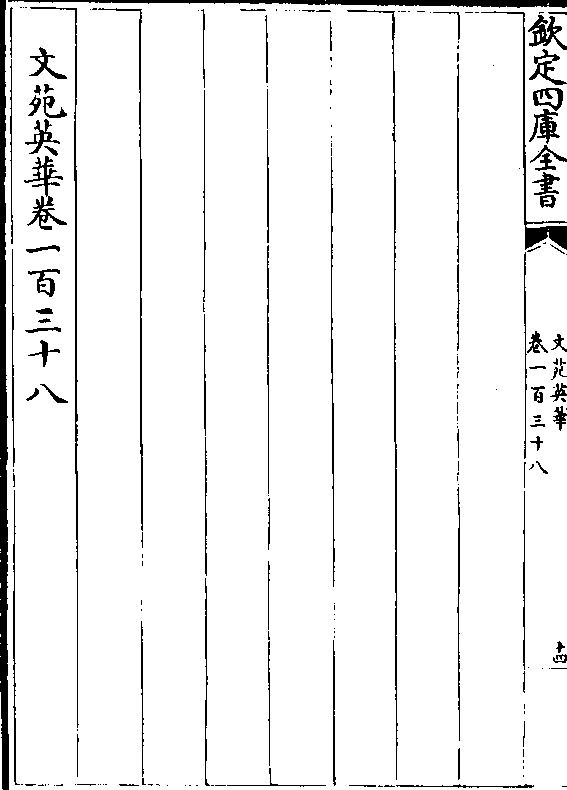 欽定四庫全書
文苑英華
卷一百三十八
十四
文苑英華卷一百三十八